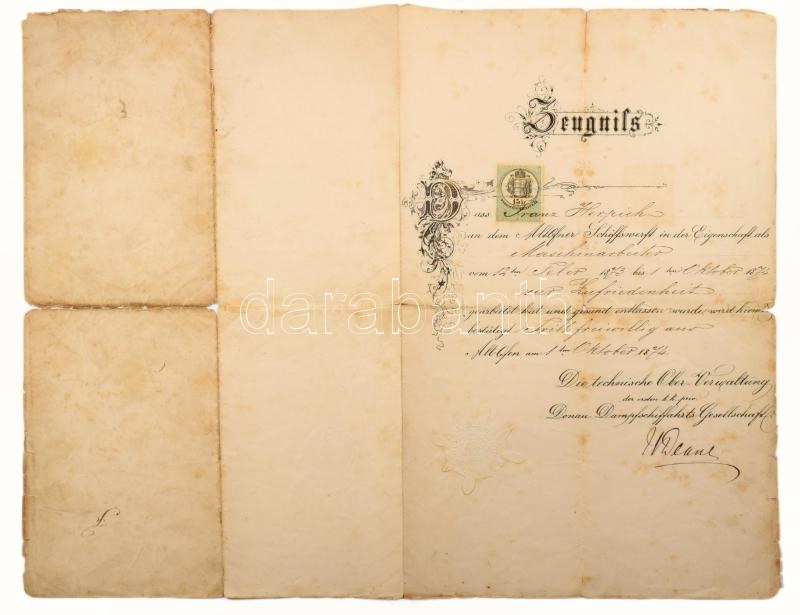 Zeugniss
Dass Franz Herpich
an dem Altofner Schiffswerft in der Eigenschaft als
Maschinarbeiter
vom 12ten Feber 1873 bis 1ten Oktober 1874
zur Zufriedenheit
gearbeitet hat und gesund entlassen wurde, wird hiemit
bestätigt. freiwillig aus
Altofen am 1ten Oktober 1874
Die technische Ober-Verwaltung
der ersten k.k. priv.
Donau-Dampfschiffahrts-Gesellschaft
Deane
15 K
darabanth